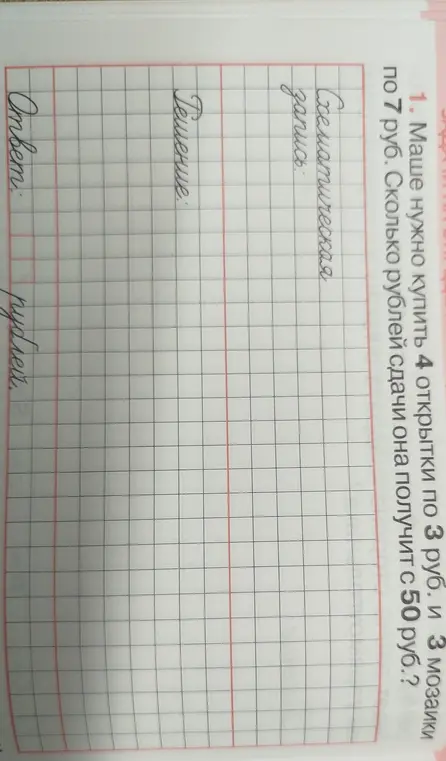 1. Маше нужно купить 4 открытки по 3 руб. и 3 мозаики
по 7 руб. Сколько рублей сдачи она получит с 50 руб.?
Схематическая
запись:
Решение:
Ответ: рублей.